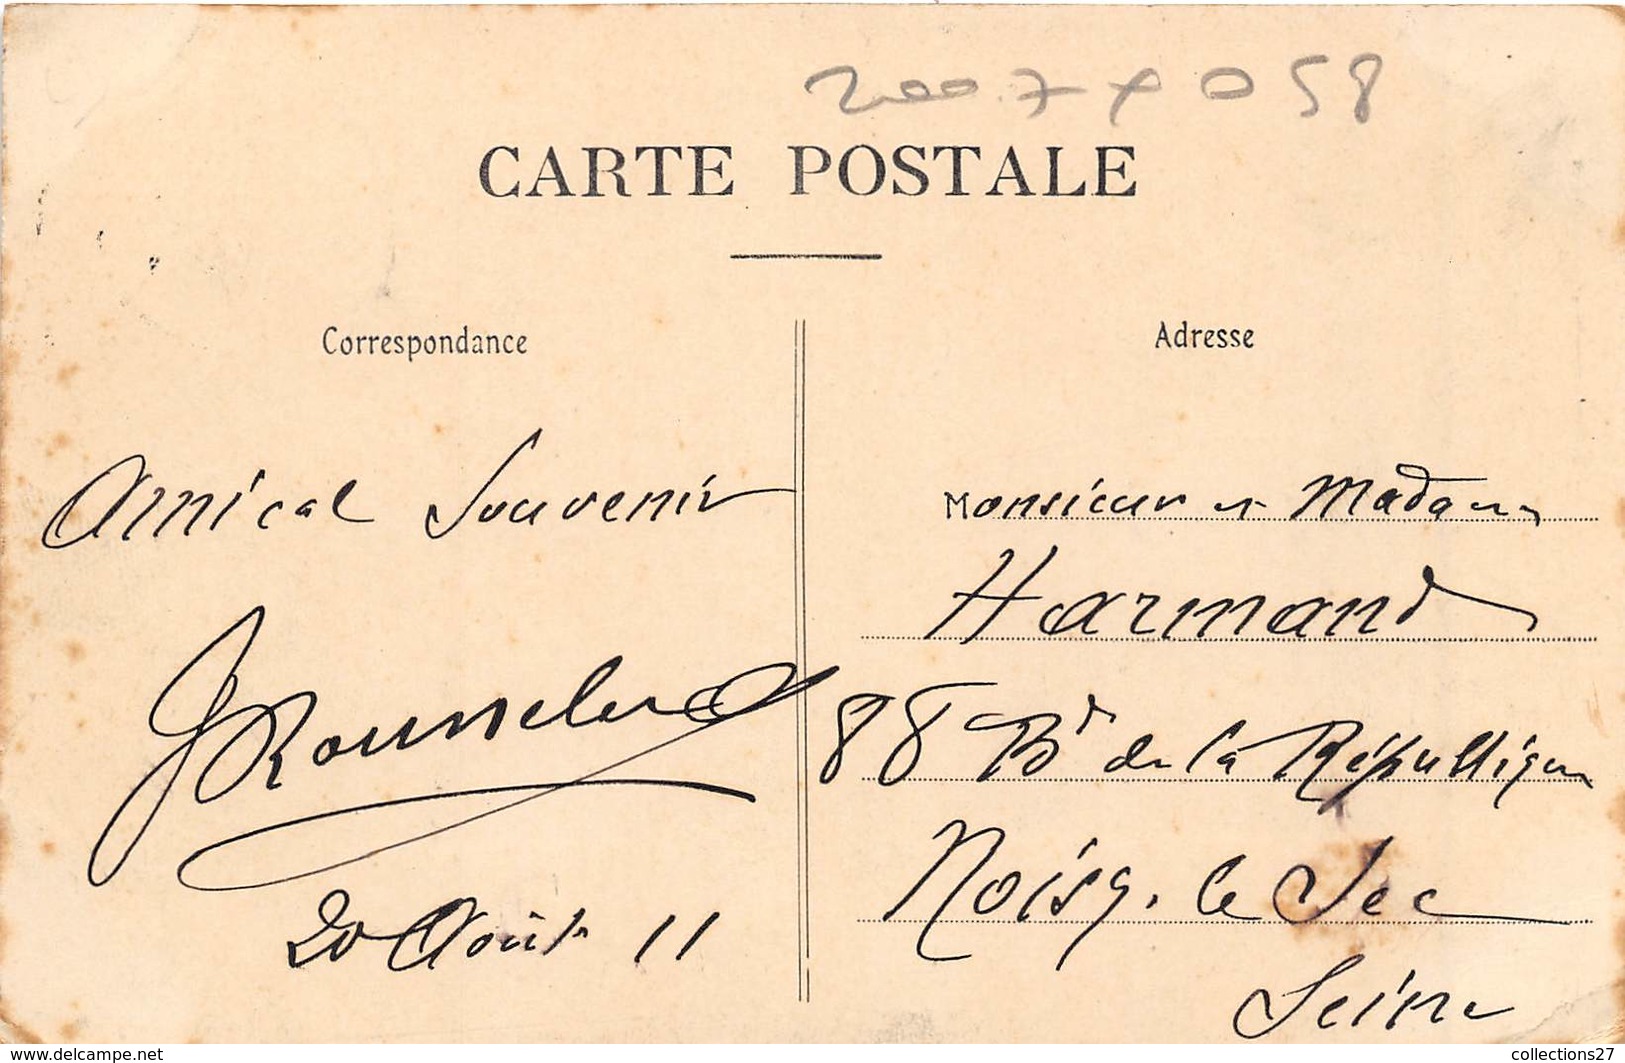 CARTE POSTALE
Correspondance
Amical Souvenir
20 Août 11
Adresse
Monsieur et Madame
Harmand
88 Bd de la République
Noisy-le Sec
Seine
www.delcampe.net
collections27